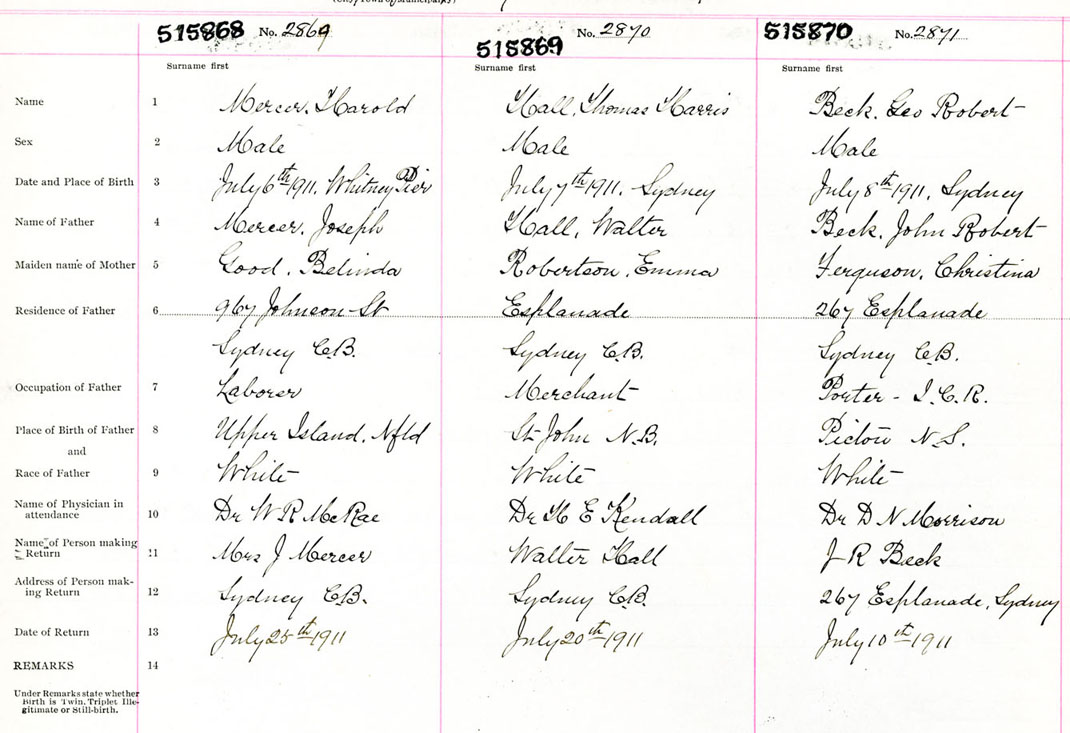 515868 No. 2869 515869 No. 2870 515870 No. 2871
Surname first Surname first Surname first
Name 1 Mercer, Harold Hall, Thomas Harris Beck, Geo Robert
Sex 2 Male Male Male
Date and Place of Birth 3 July 6th 1911, Whitney Pier July 7th 1911, Sydney July 8th 1911, Sydney
Name of Father 4 Mercer, Joseph Hall, Walter Beck, John Robert
Maiden name of Mother 5 Good, Belinda Robertson, Emma Ferguson, Christina
Residence of Father 6 967 Johnson St Esplanade 267 Esplanade
Sydney C.B. Sydney C.B. Sydney C.B.
Occupation of Father 7 Laborer Merchant Porter - I.C.R.
Place of Birth of Father 8 Upper Island, Nfld St John N.B. Pictou N.S.
and
Race of Father 9 White White White
Name of Physician in
attendance 10 Dr W R McRae Dr H E Kendall Dr D N Morrison
Name of Person making
Return 11 Mrs J Mercer Walter Hall J R Beck
Address of Person mak-
ing Return 12 Sydney C.B. Sydney C.B. 267 Esplanade, Sydney
Date of Return 13 July 25th 1911 July 20th 1911 July 10th 1911
REMARKS 14
Under Remarks state whether
Birth is Twin, Triplet Ille-
gitimate or Still-birth.